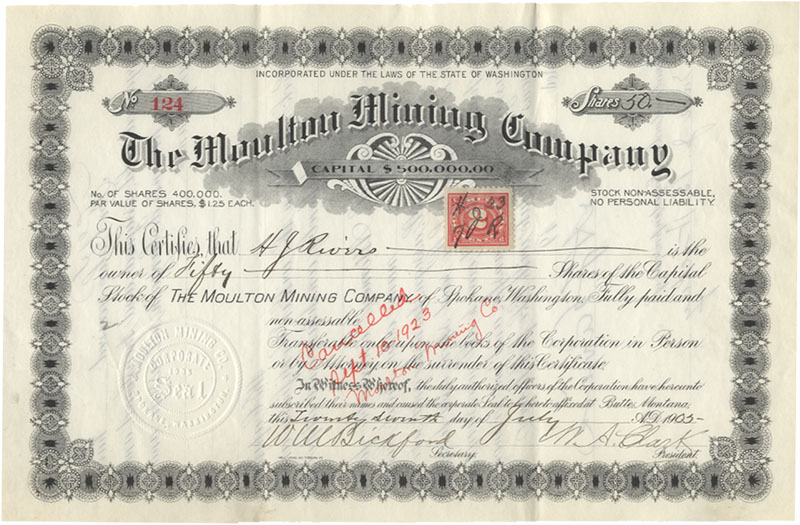 INCORPORATED UNDER THE LAWS OF THE STATE OF WASHINGTON
No 124
Shares 50
The Moulton Mining Company
CAPITAL $500,000.00
No. OF SHARES 400,000.
PAR VALUE OF SHARES, $1.25 EACH.
STOCK NON-ASSESSABLE,
NO PERSONAL LIABILITY.
23
2
This Certifies, that H J Rivers is the
owner of Fifty Shares of the Capital
Stock of THE MOULTON MINING COMPANY of Spokane, Washington, Fully paid and
non-assessable.
Transferable only upon the books of the Corporation in Person
or by Attorney, on the surrender of this Certificate.
Cancelled
Sept 10 1923
Moulton Mining Co
In Witness Whereof, the duly authorized officers of the Corporation have hereunto
subscribed their names and caused the corporate Seal to be hereto affixed at Butte, Montana,
this Twenty seventh day of July A.D. 1905
MOULTON MINING CO.
CORPORATE
Seal
WASHINGTON
W M Bickford
W. A. Clark
Secretary.
President.